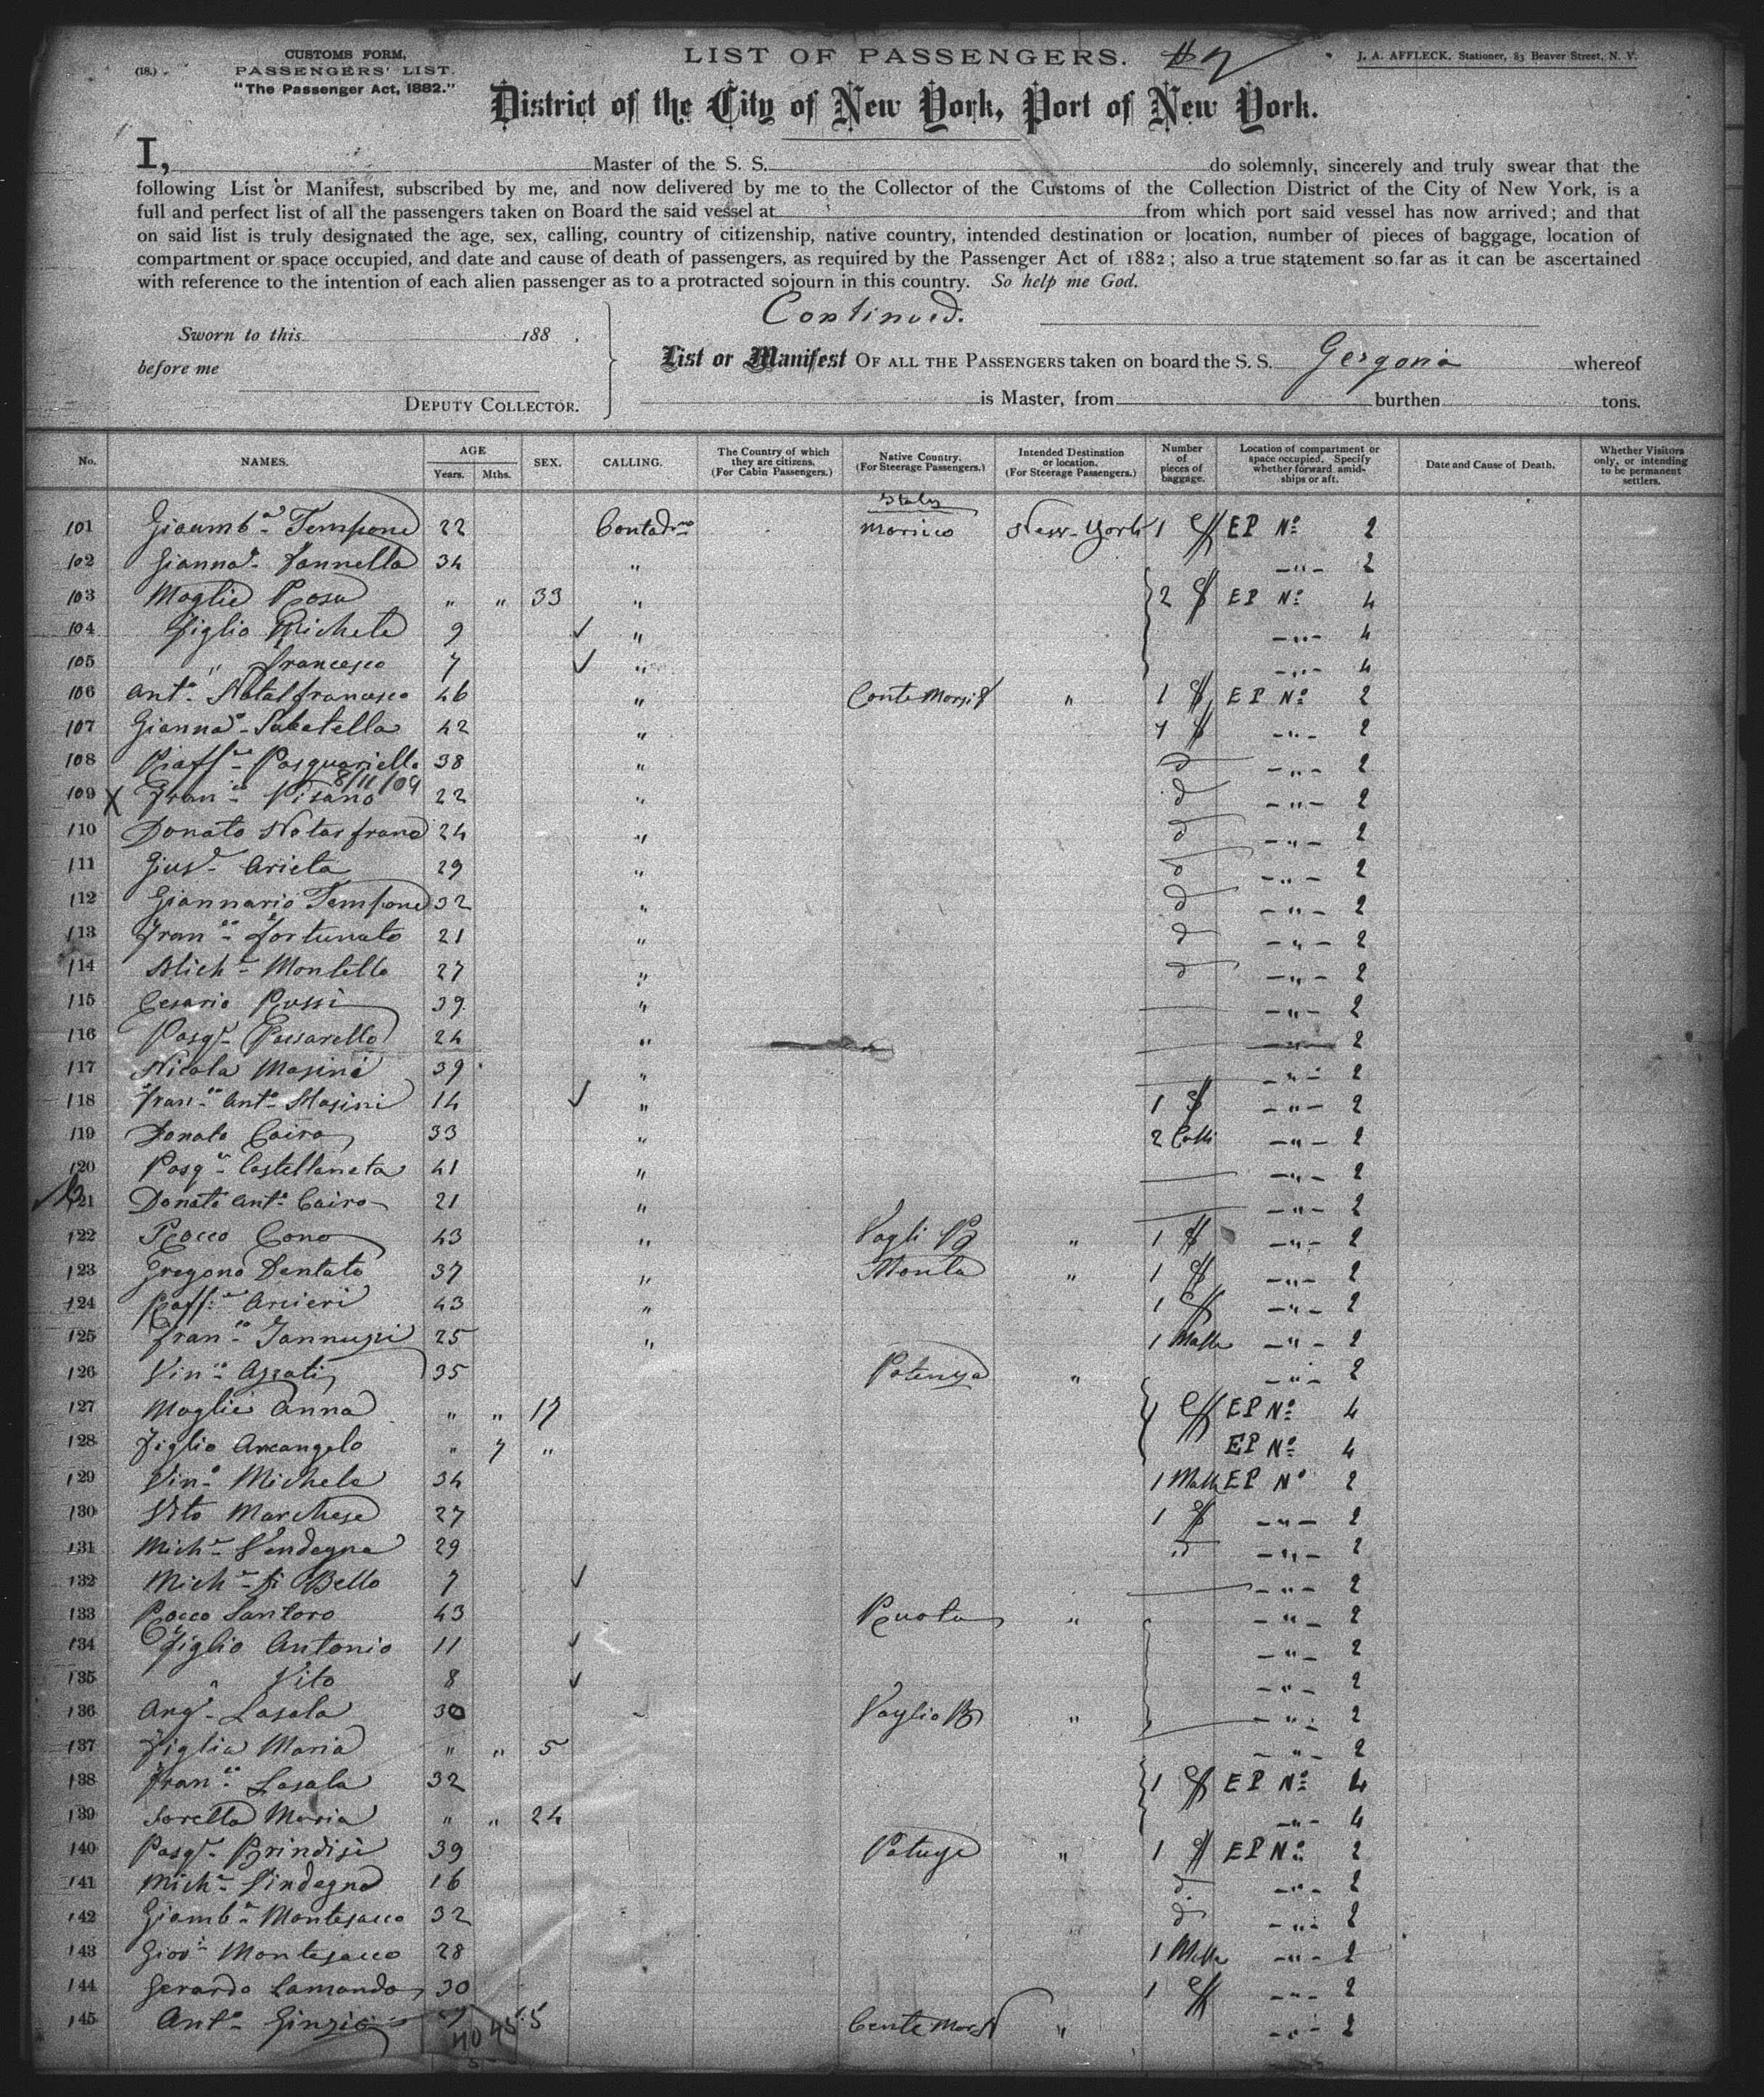 (18.)
CUSTOMS FORM,
PASSENGERS' LIST.
"The Passenger Act, 1882."
LIST OF PASSENGERS.
J. A. AFFLECK, Stationer, 83 Beaver Street, N. Y.
District of the City of New York, Port of New York.
I, Master of the S. S. do solemnly, sincerely and truly swear that the
following List or Manifest, subscribed by me, and now delivered by me to the Collector of the Customs of the Collection District of the City of New York, is a
full and perfect list of all the passengers taken on Board the said vessel at from which port said vessel has now arrived; and that
on said list is truly designated the age, sex, calling, country of citizenship, native country, intended destination or location, number of pieces of baggage, location of
compartment or space occupied, and date and cause of death of passengers, as required by the Passenger Act of 1882; also a true statement so far as it can be ascertained
with reference to the intention of each alien passenger as to a protracted sojourn in this country. So help me God.
Continued.
Sworn to this 188 .
before me
DEPUTY COLLECTOR.
List or Manifest OF ALL THE PASSENGERS taken on board the S. S. Gergovia whereof
is Master, from burthen tons.
No. NAMES. AGE Years. Mths. SEX. CALLING. The Country of which they are citizens. (For Cabin Passengers.) Native Country. (For Steerage Passengers.) Intended Destination or location. (For Steerage Passengers.) Number of pieces of baggage. Location of compartment or space occupied. Specify whether forward amidships or aft. Date and Cause of Death. Whether Visitors only, or intending to be permanent settlers.
Italy
101 Giaumb.a Tempone 22 Contad.no New-York 1 EP No 2
102 Gianna.o Iannella 34 " -"- 2
103 Moglie Rosa " " 33 " 2 EP No 4
104 Figlio Michele 9 ✓ " -"- 4
105 " Francesco 7 ✓ " -"- 4
106 Ant.o Notalfrancesco 46 " " 1 EP No 2
107 Gianna.o Sabatella 42 " -"- 2
108 Raff.le Pasquariello 38 " d -"- 2
8/11/09
109 X Fran.co Pisano 22 " d -"- 2
110 Donato Notarfranc 24 " d -"- 2
111 Gius.e Arieta 29 " d -"- 2
112 Giannario Tempone 32 " d -"- 2
113 Fran.co Fortunato 21 " d -"- 2
114 Mich.e Montello 27 " d -"- 2
115 Cesario Russi 39 " -"- 2
116 Pasq.e Passarello 24 " -"- 2
117 Nicola Masini 39 " -"- 2
118 Fran.co Ant.o Masini 14 ✓ " 1 -"- 2
119 Donato Cairo 33 " 2 Colli -"- 2
120 Pasq.e Castellaneta 41 " -"- 2
121 Donato Ant.o Cairo 21 " -"- 2
122 Rocco Cono 43 " " 1 -"- 2
123 Gregorio Dentato 37 " " 1 -"- 2
124 Raff.le Arcieri 43 " 1 -"- 2
125 Fran.co Iannuzzi 25 " 1 -"- 2
126 Vin.zo Azzati 35 Potenza " -"- 2
127 Moglie Anna " " 17 EP No 4
128 Figlio Arcangelo " 7 " EP No 4
129 Vin.o Michele 34 1 EP No 2
130 Vito Marchese 27 1 -"- 2
131 Mich.e Vendegna 29 " -"- 2
132 Mich.e di Bello 7 ✓ -"- 2
133 Rocco Santoro 43 Ruota " -"- 2
134 Figlio Antonio 11 ✓ -"- 2
135 " Vito 8 ✓ -"- 2
136 Ang.o Lasala 30 Vaglio " -"- 2
137 Figlia Maria " " 5 -"- 2
138 Fran.co Lasala 32 1 EP No 4
139 Sorella Maria " " 24 -"- 4
140 Pasq.e Brindisi 39 " 1 EP No 2
141 Mich.e Vindegna 16 d. -"- 2
142 Giamb.a Montesacco 32 d -"- 2
143 Giov.i Montesacco 28 1 -"- 2
144 Gerardo Lamanda 30 1 -"- 2
145 Ant.o Ginzio " -"- 2